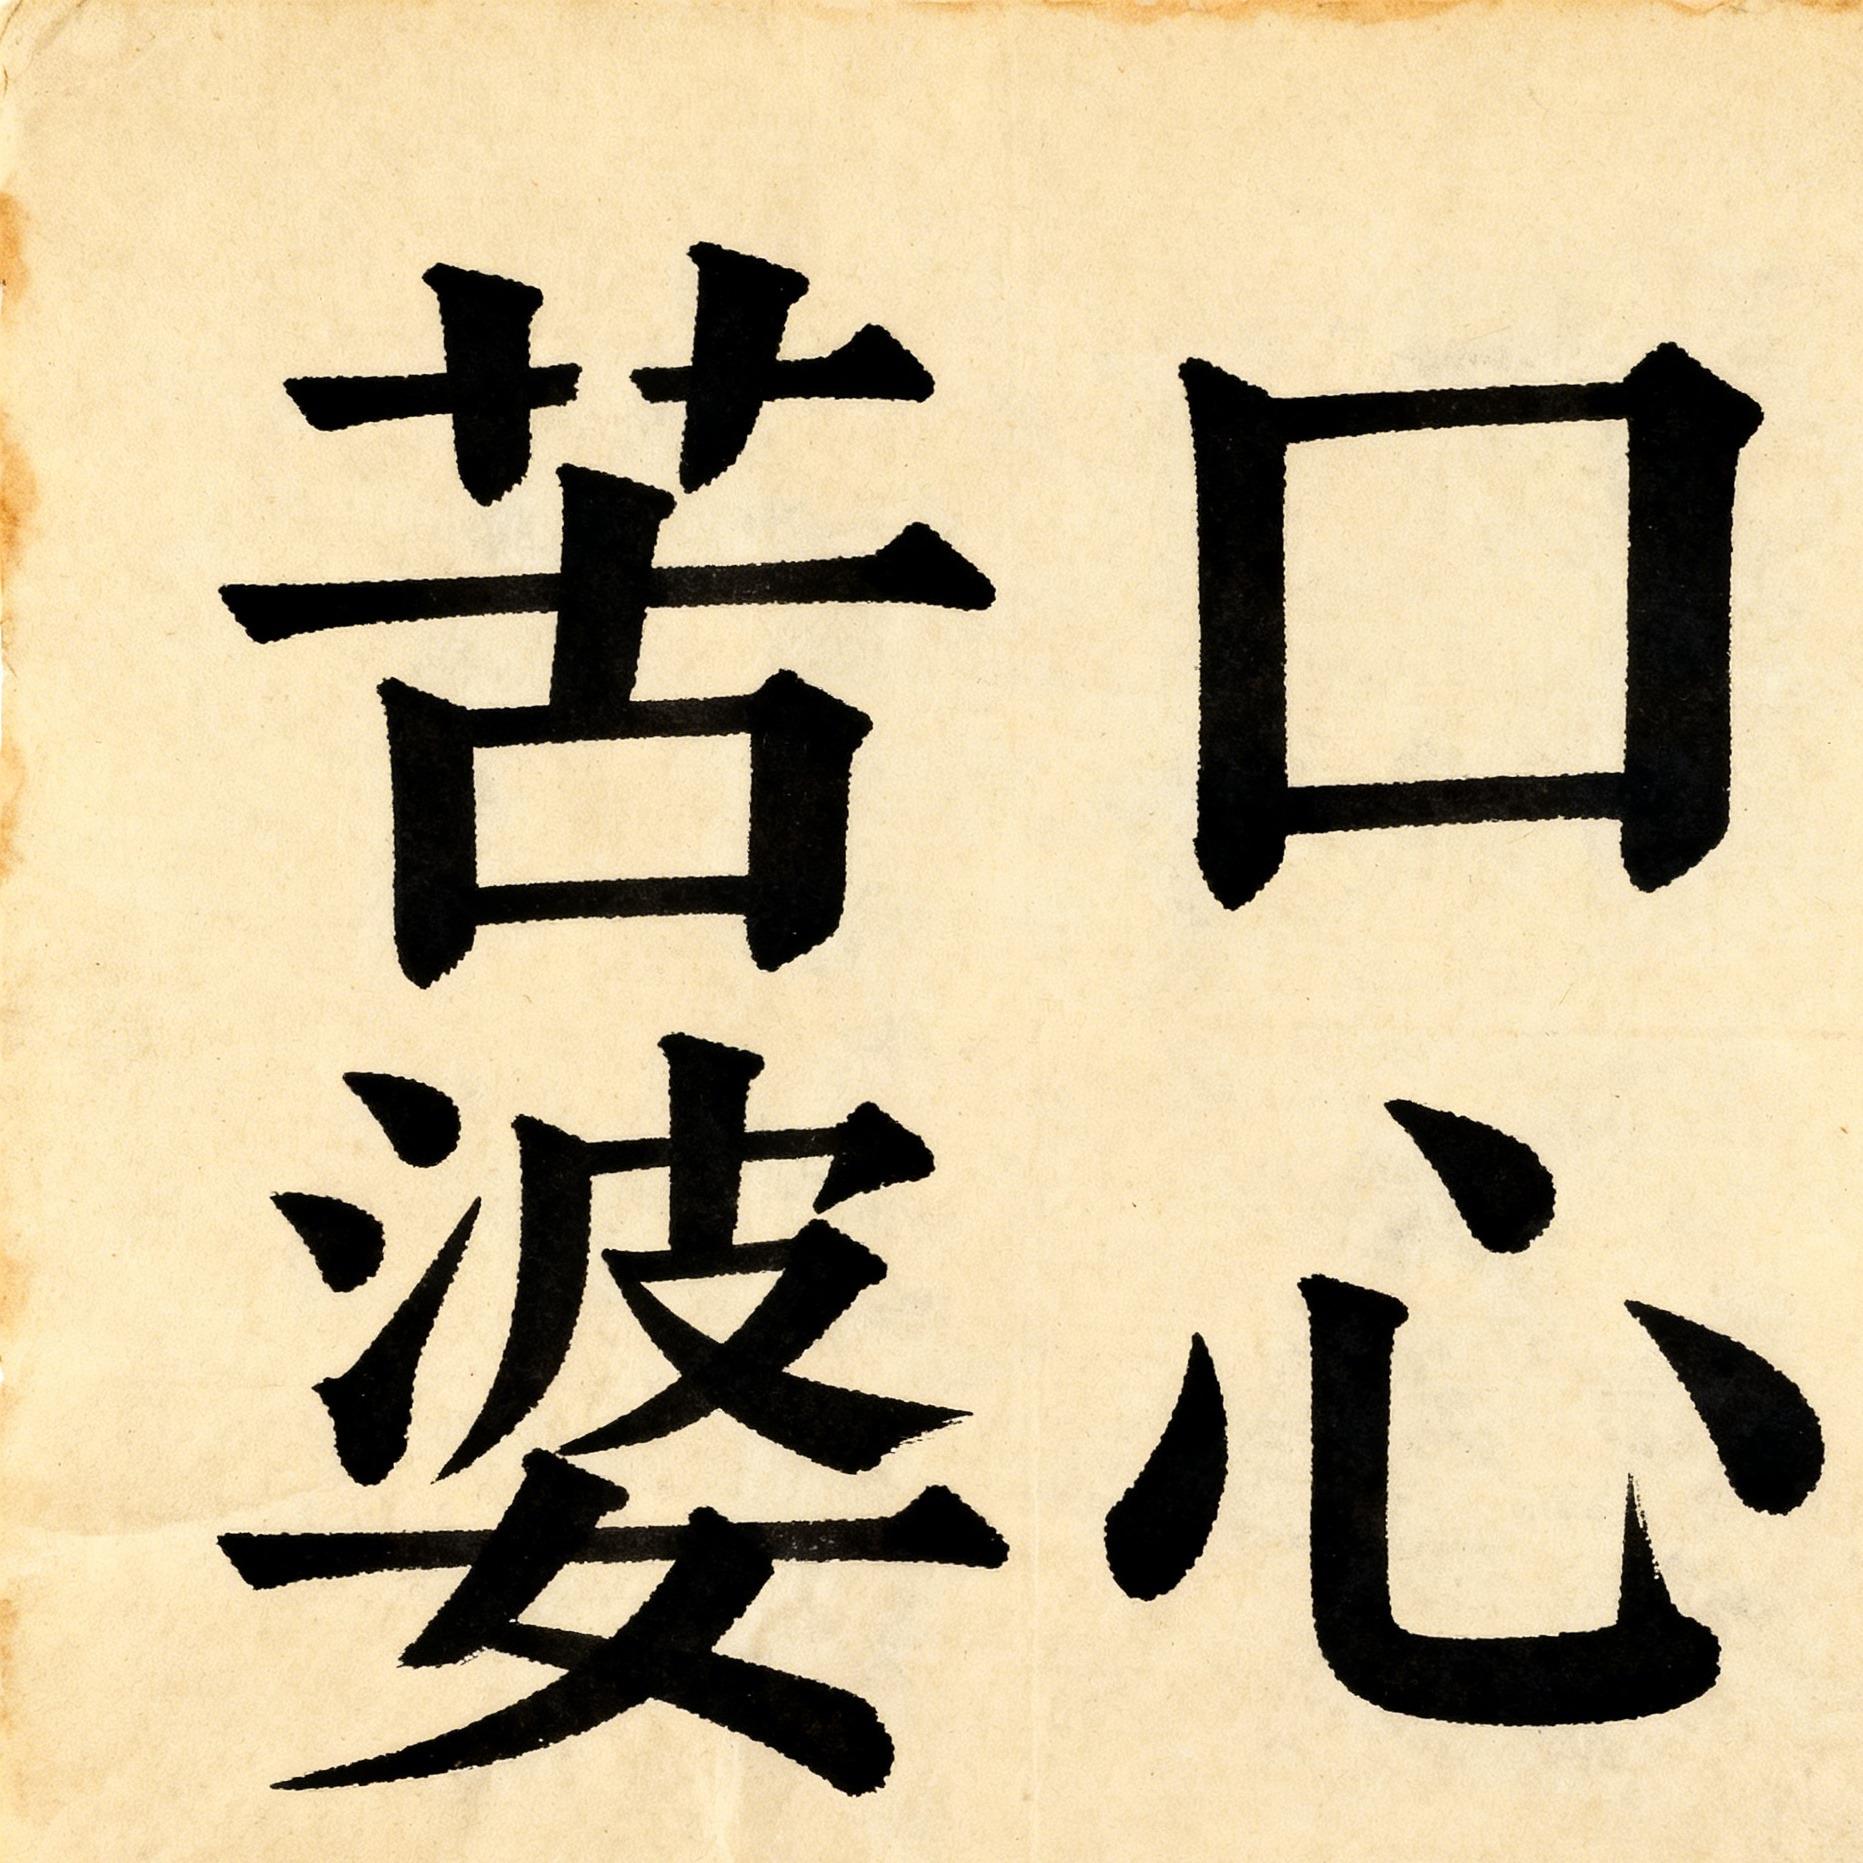 口心
苦婆